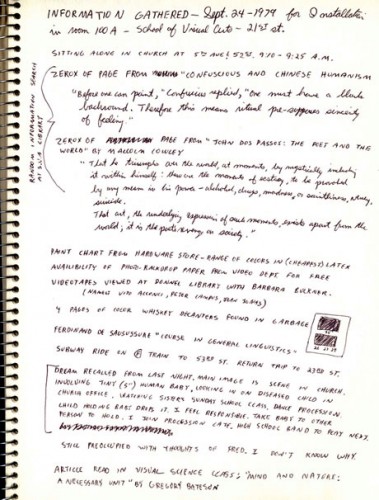 INFORMATION GATHERED — Sept. 24 - 1979 for installation
in room 100A - School of Visual Arts - 21st st.
SITTING ALONE IN CHURCH AT 5TH AVE & 52ND, 9:10 - 9:25 A.M.
RANDOM INFORMATION SEARCH
AT LIBRARY
ZEROX OF PAGE FROM "CONFUSCIOUS AND CHINESE HUMANISM
"Before one can paint," Confucius replied, "One must have a blank
background. Therefore this means ritual pre-supposes sincerity
of feeling."
ZEROX OF PAGE FROM "JOHN DOS PASSOS: THE POET AND THE
WORLD" BY MALCOLM COWLEY
"That he triumphs over the world, at moments, by mystically including
it within himself: these are the moments of ecstasy, to be provoked
by any means in his power - alcohol, drugs, madness, or saintliness, venery,
suicide.
That art, the underlying expression of such moments, exists apart from the
world; it is the poet's revenge on society."
PAINT CHART FROM HARDWARE STORE - RANGE OF COLORS IN (CHEAPEST) LATEX
AVAILABILITY OF PHOTO-BACKDROP PAPER FROM VIDEO DEPT. FOR FREE
VIDEOTAPES VIEWED AT DONNELL LIBRARY WITH BARBARA BUCKNER.
(NAMELY VITO ACCONCI, PETER CAMPUS, JOAN JONAS)
4 PAGES OF COLOR WHISKEY DECANTERS FOUND IN GARBAGE
FERDINAND DE SAUSSURE "COURSE IN GENERAL LINGUISTICS"
SUBWAY RIDE ON TRAIN TO 53RD ST. RETURN TRIP TO 23RD ST.
DREAM RECALLED FROM LAST NIGHT. MAIN IMAGE IS SCENE IN CHURCH.
INVOLVING TINY (5") HUMAN BABY, LOOKING IN ON DISEASED CHILD IN
CHURCH OFFICE. WATCHING SISTERS SUNDAY SCHOOL CLASS, DANCE PROCESSION.
CHILD HOLDING BABY DROPS IT. I FEEL RESPONSIBLE. TAKE BABY TO OTHER
PERSON TO HOLD. I JOIN PROCESSION LATE. HIGH SCHOOL BAND TO PLAY NEXT.
STILL PREOCCUPIED WITH THOUGHTS OF FRED. I DON'T KNOW WHY.
ARTICLE READ IN VISUAL SCIENCE CLASS: "MIND AND NATURE:
A NECESSARY UNIT" BY GREGORY BATESON